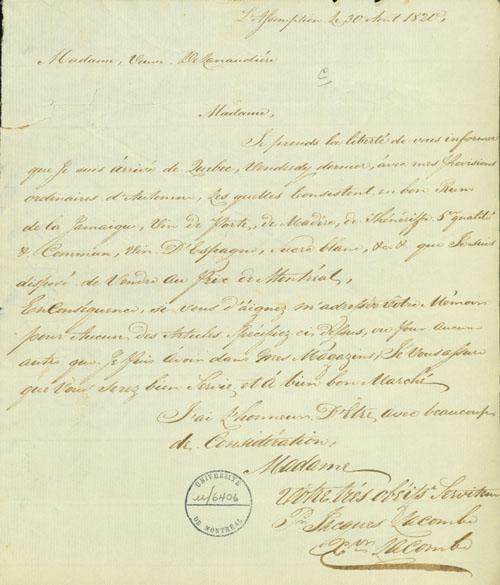 L'Assomption le 30 Aout 1820,
Madame, Veuve DeLanaudière
Madame,
Je prends la liberté de vous informer
que Je suis arrivé de Quebec, Vendredy dernier, avec mes Provisions
ordinaires d'Automne, Les quelles Consistent en bon Rum
de la Jamaique, Vin de Porte, de Madère, de Ténériffe 1re qualité
& Commun, Vin D'Espagne, Sucre blanc, &c &c que Je suis
disposé de Vendre au Prix de Montréal,
En Conséquence, si vous d'aignez m'adresser votre Mémoire
pour Aucun des Articles Spécifiez ci Dessus, ou pour aucun
autre que Je Puis avoir dans mes Magazins, Je Vous assure
que Vous Serez bien Servie, et à bien bon Marché
J'ai L'honneur D'Être avec beaucoup
de Considération,
Madame
Votre très obéist. Serviteur
Pr Jacques Lacombe
Lacombe
UNIVERSITÉ
u/6406
DE MONTRÉAL